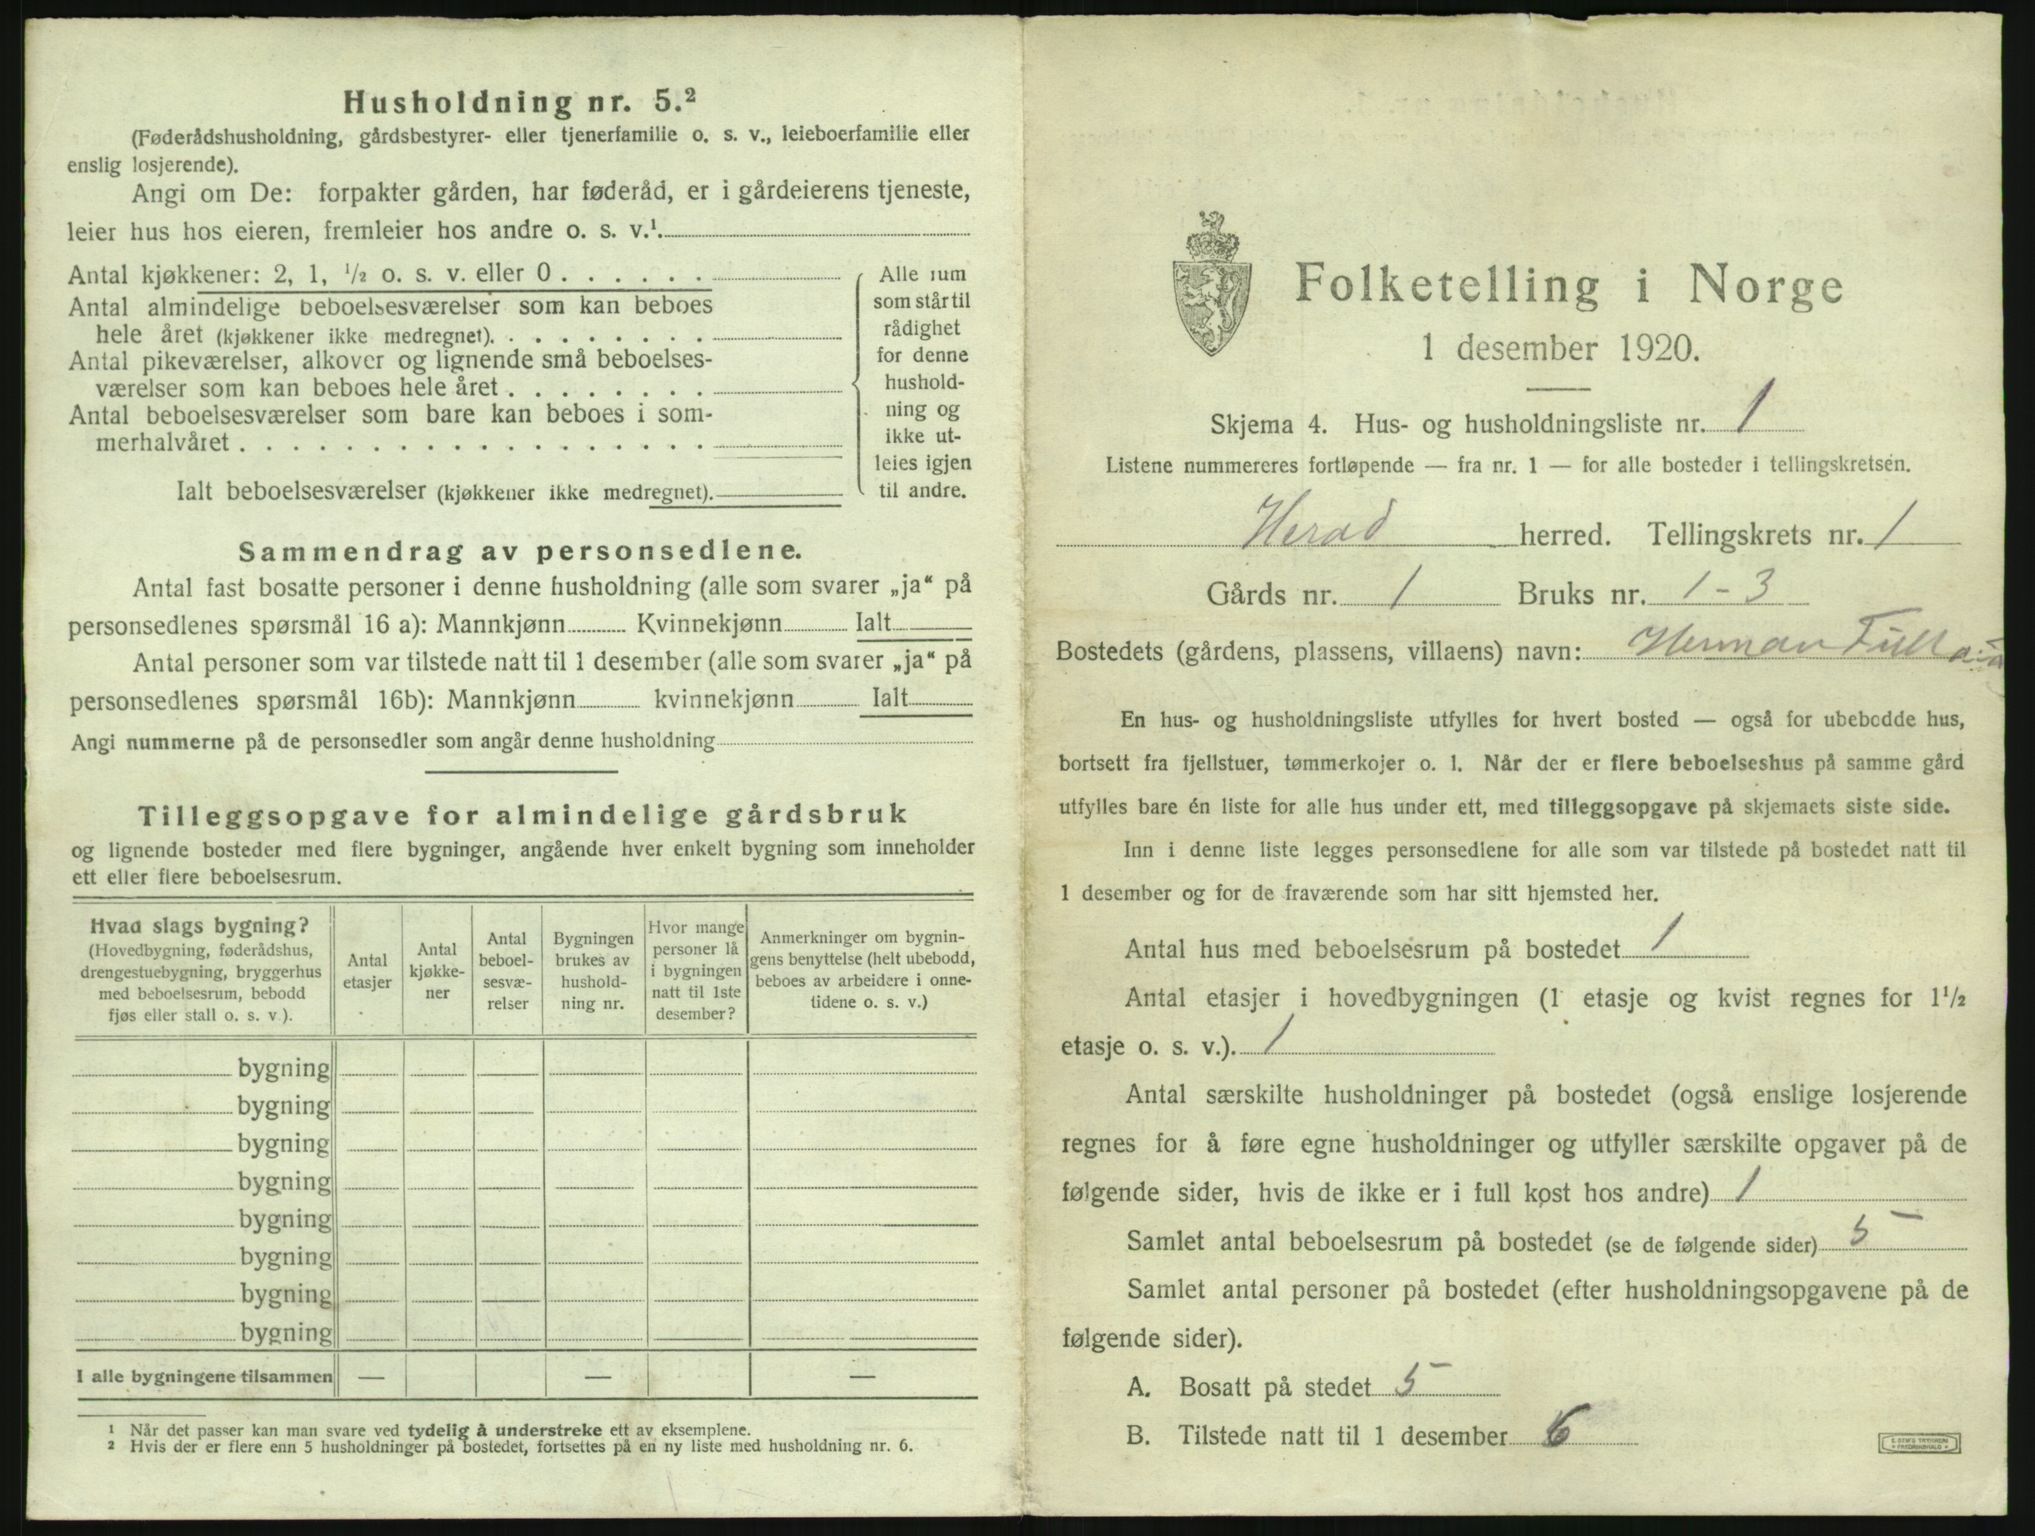 Husholdning nr. 5.²
(Føderådshusholdning, gårdsbestyrer- eller tjenerfamilie o. s. v., leieboerfamilie eller
enslig losjerende).
Angi om De: forpakter gården, har føderåd, er i gårdeierens tjeneste,
leier hus hos eieren, fremleier hos andre o. s. v.¹.
Antal kjøkkener: 2, 1, ¹/₂ o. s. v. eller 0 . . . . . .
Antal almindelige beboelsesværelser som kan beboes
hele året (kjøkkener ikke medregnet). . . . . . . . .
Antal pikeværelser, alkover og lignende små beboelses-
værelser som kan beboes hele året . . . . . . . .
Antal beboelsesværelser som bare kan beboes i som-
merhalvåret . . . . . . . . . . . . . . . . . .
Ialt beboelsesværelser (kjøkkener ikke medregnet).
Alle rum
som står til
rådighet
for denne
hushold-
ning og
ikke ut-
leies igjen
til andre.
Sammendrag av personsedlene.
Antal fast bosatte personer i denne husholdning (alle som svarer „ja“ på
personsedlenes spørsmål 16 a): Mannkjønn Kvinnekjønn Ialt
Antal personer som var tilstede natt til 1 desember (alle som svarer „ja“ på
personsedlenes spørsmål 16b): Mannkjønn kvinnekjønn Ialt
Angi nummerne på de personsedler som angår denne husholdning
Tilleggsopgave for almindelige gårdsbruk
og lignende bosteder med flere bygninger, angående hver enkelt bygning som inneholder
ett eller flere beboelsesrum.
Hvad slags bygning?
(Hovedbygning, føderådshus,
drengestuebygning, bryggerhus
med beboelsesrum, bebodd
fjøs eller stall o. s. v.).
Antal
etasjer
Antal
kjøkke-
ner
Antal
beboel-
sesvæ-
relser
Bygningen
brukes av
hushold-
ning nr.
Hvor mange
personer lå
i bygningen
natt til 1ste
desember?
Anmerkninger om bygnin-
gens benyttelse (helt ubebodd,
beboes av arbeidere i onne-
tidene o. s. v.)
bygning
bygning
bygning
bygning
bygning
bygning
bygning
bygning
I alle bygningene tilsammen — — —
¹ Når det passer kan man svare ved tydelig å understreke ett av eksemplene.
² Hvis der er flere enn 5 husholdninger på bostedet, fortsettes på en ny liste med husholdning nr. 6.
Folketelling i Norge
1 desember 1920.
Skjema 4. Hus- og husholdningsliste nr. 1
Listene nummereres fortløpende — fra nr. 1 — for alle bosteder i tellingskretsen.
Herad herred. Tellingskrets nr. 1
Gårds nr. 1 Bruks nr. 1 - 3
Bostedets (gårdens, plassens, villaens) navn: Herman
En hus- og husholdningsliste utfylles for hvert bosted — også for ubebodde hus,
bortsett fra fjellstuer, tømmerkojer o. l. Når der er flere beboelseshus på samme gård
utfylles bare én liste for alle hus under ett, med tilleggsopgave på skjemaets siste side.
Inn i denne liste legges personsedlene for alle som var tilstede på bostedet natt til
1 desember og for de fraværende som har sitt hjemsted her.
Antal hus med beboelsesrum på bostedet 1
Antal etasjer i hovedbygningen (1 etasje og kvist regnes for 1¹/₂
etasje o. s. v.). 1
Antal særskilte husholdninger på bostedet (også enslige losjerende
regnes for å føre egne husholdninger og utfyller særskilte opgaver på de
følgende sider, hvis de ikke er i full kost hos andre) 1
Samlet antal beboelsesrum på bostedet (se de følgende sider) 5
Samlet antal personer på bostedet (efter husholdningsopgavene på de
følgende sider).
A. Bosatt på stedet 5
B. Tilstede natt til 1 desember 6